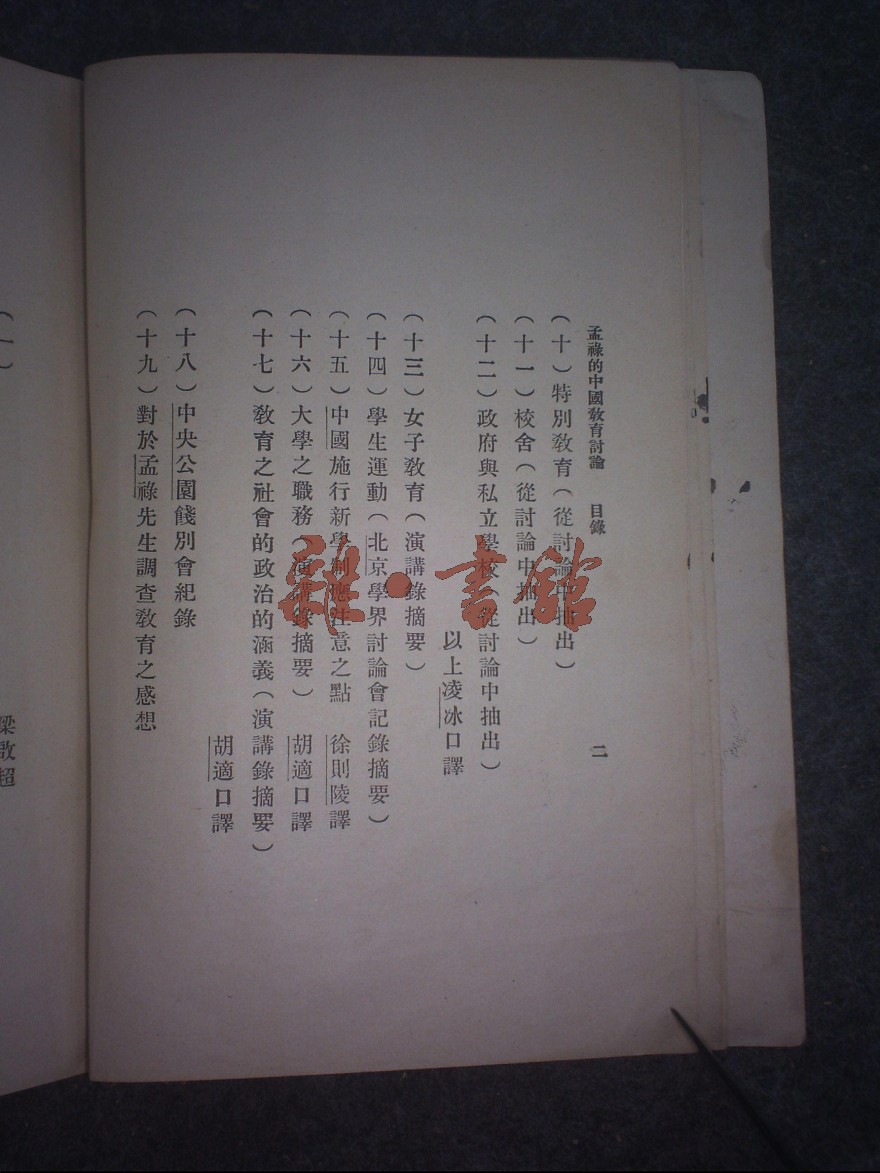 孟祿的中國教育討論 目錄 二
(十)特別教育(從討論中抽出)
(十一)校舍(從討論中抽出)
(十二)政府與私立學校(從討論中抽出)
以上凌冰口譯
(十三)女子教育(演講錄摘要)
(十四)學生運動(北京學界討論會記錄摘要)
(十五)中國施行新學制應注意之點 徐則陵譯
(十六)大學之職務(演講錄摘要) 胡適口譯
(十七)教育之社會的政治的涵義(演講錄摘要)
胡適口譯
(十八)中央公園餞別會紀錄
(十九)對於孟祿先生調查教育之感想
梁啟超
(一)
雜·書館